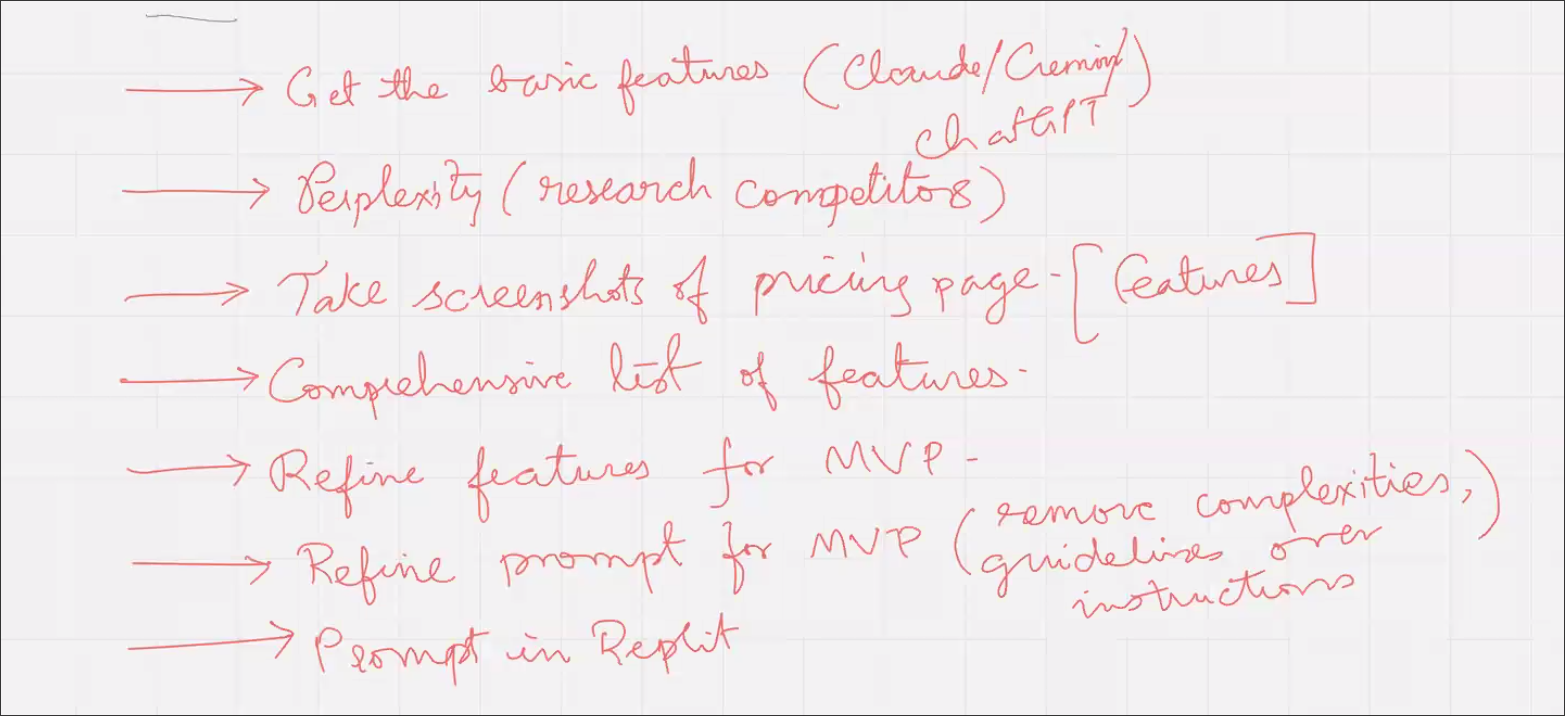 → Get the basic features (Claude/Gemini/
ChatGPT)
→ Perplexity (research competitors)
→ Take screenshots of pricing page - [features]
→ Comprehensive list of features.
→ Refine features for MVP -
→ Refine prompt for MVP (remove complexities,
guidelines over
instructions)
→ Prompt in Replit